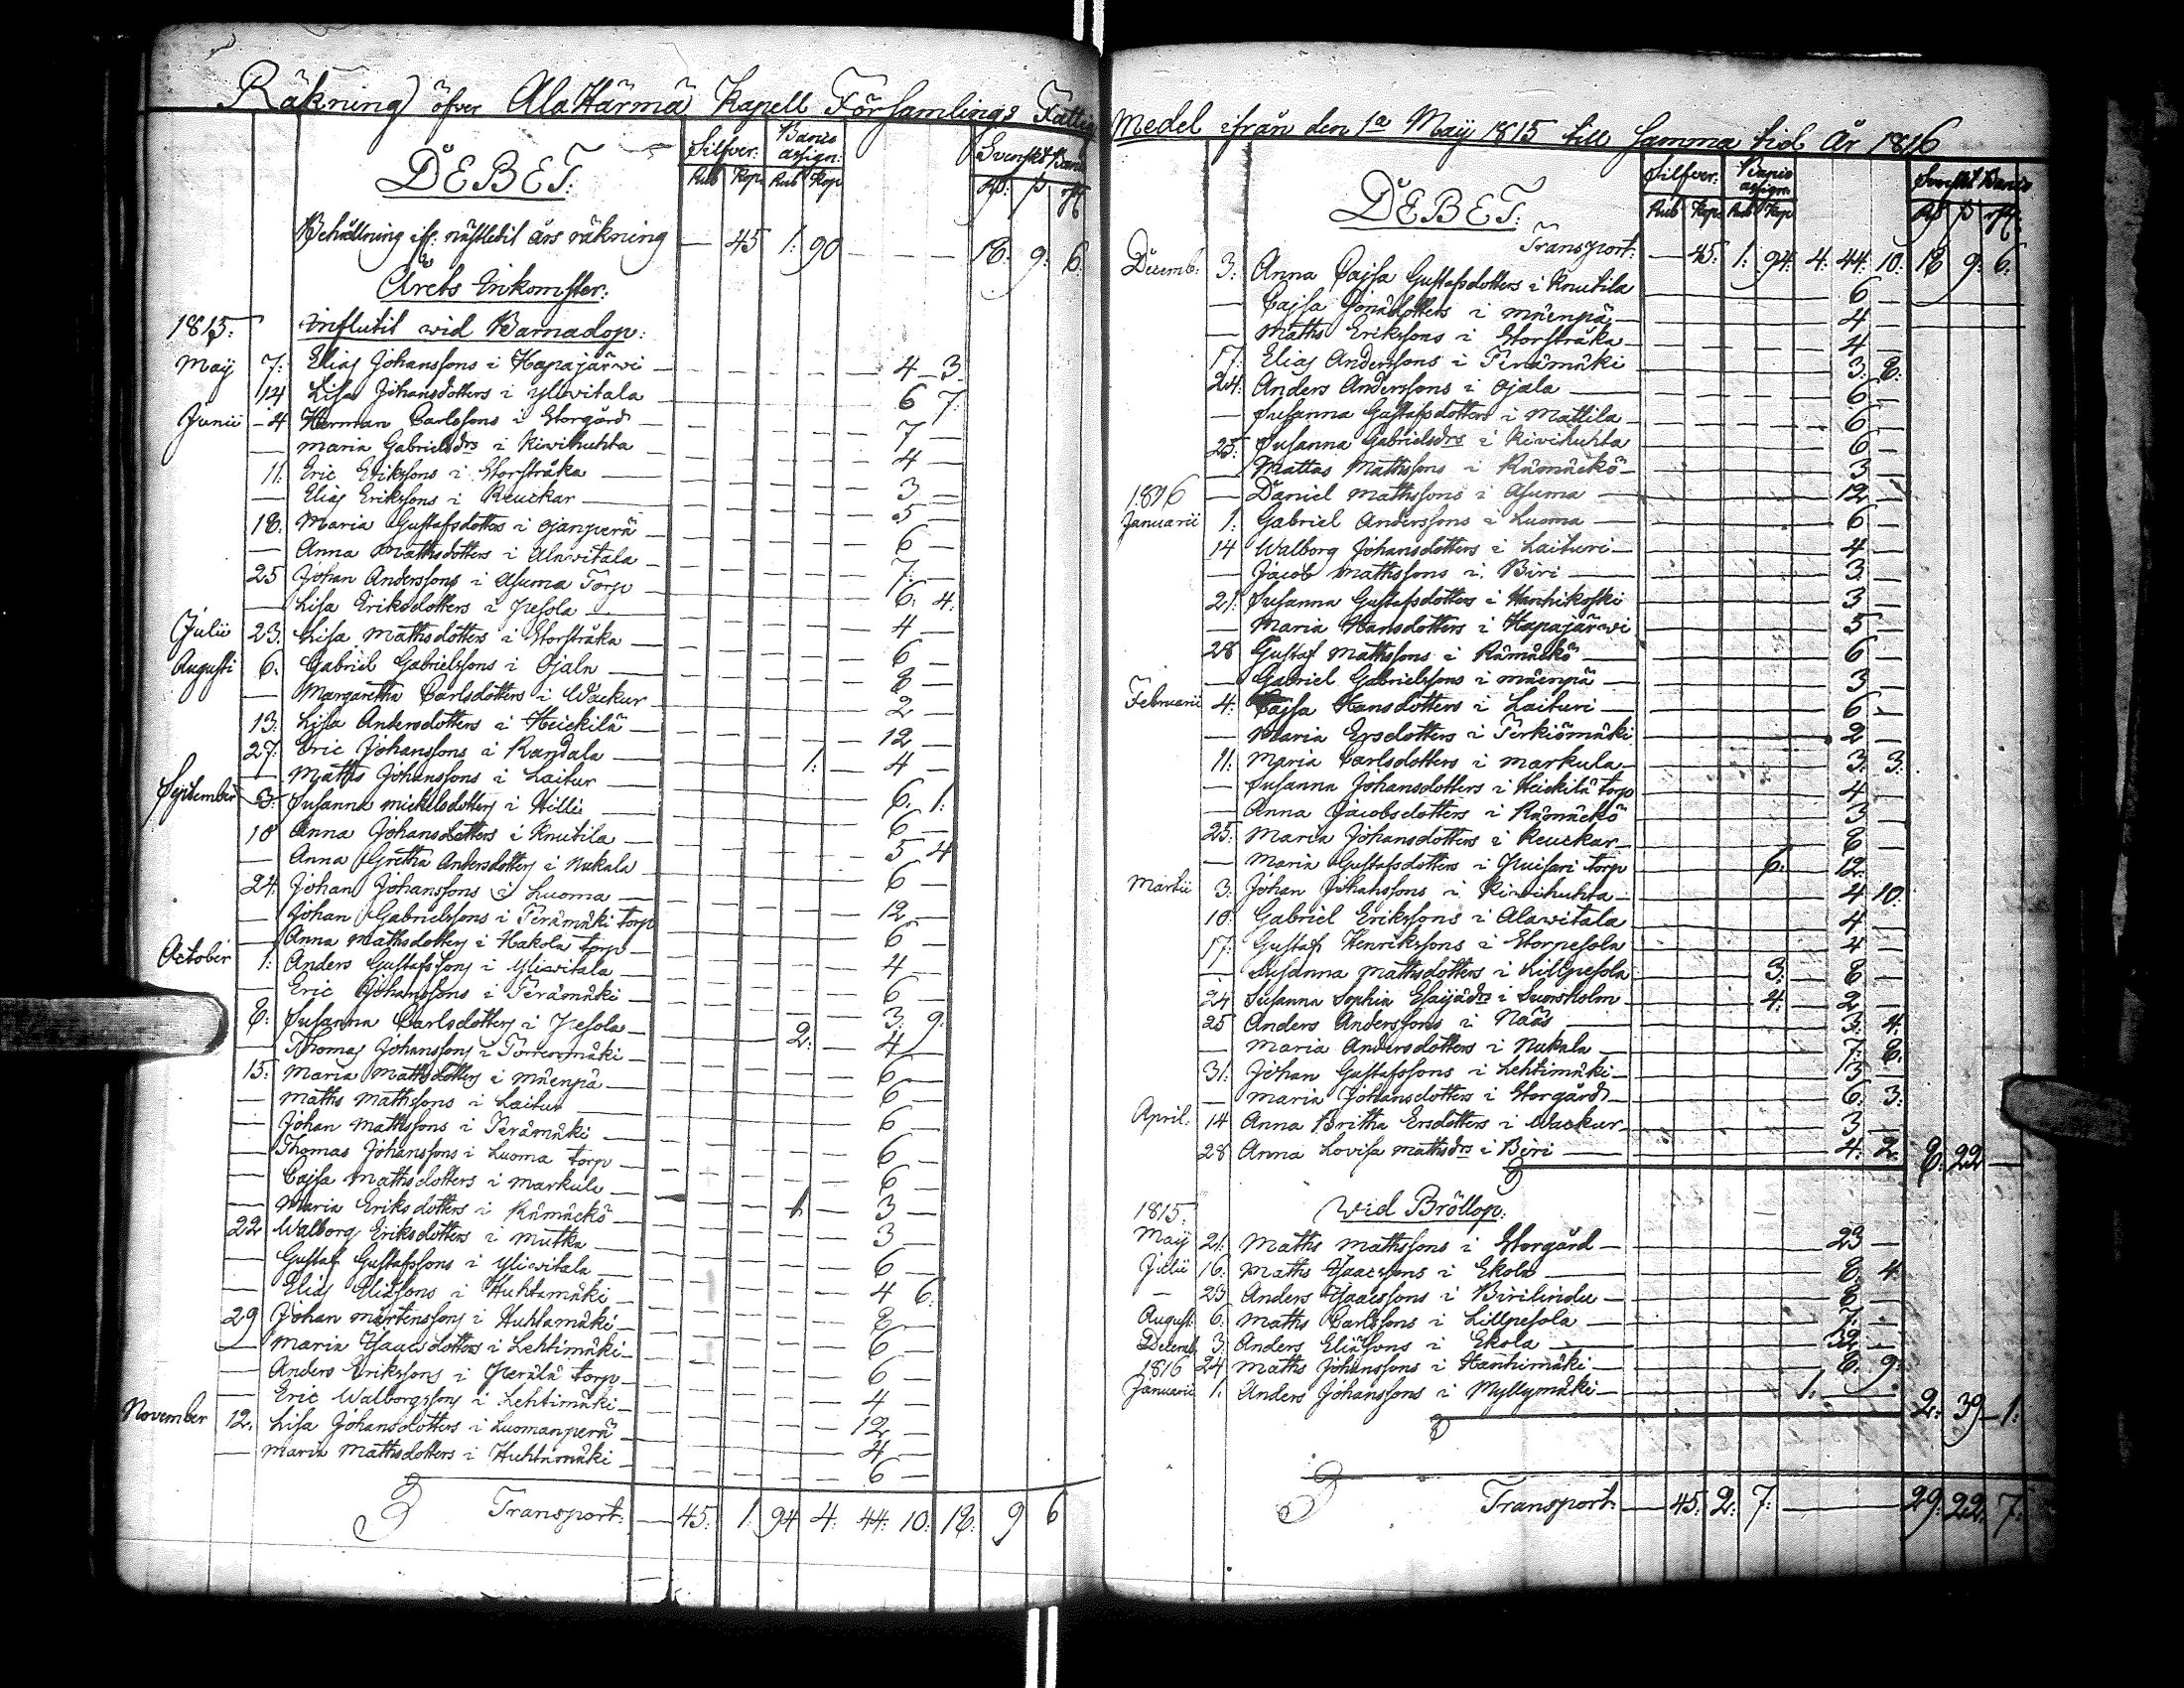 Räkning öfver AlaHärmä Kapell Församlings Fattig
DEBET:
Silfver: Banco assign: Svenskt Banco
Rub Kop. Rub Kop Rd: ß rst
Behållning ifr: nästledit års räkning — 45 1: 90 — — — 18: 9: 6:
Årets Inkomster:
1815: influtit wid Barnadop:
Maij 7: Elias Johanssons i Hapajärwi 4 3
14 Lisa Johansdotters i Yliwitala 6 7:
Junii 4 Herman Carlssons i Storgård 7 —
— Maria Gabrielsdrs i Kiwihuhta 4 —
11: Eric Erikssons i Storstråka 3 —
— Elias Erikssons i Reuckar 5 —
18: Maria Gustafsdotters i Ojanperä 6 —
— Anna Mathsdotters i Alawitala 7: —
25 Johan Anderssons i Asuma Torp 6: 4:
— Lisa Eriksdotters i Pesola 4 —
Julii 23. Lisa Mathsdotters i Storstråka 6 —
Augusti 6. Gabriel Gabrielssons i Ojala 8 —
— Margaretha Carlsdotters i Wackur 2 —
13: Lisa Andersdotters i Heickilä 12 —
27: Eric Johanssons i Randala 1: — 4 —
— Maths Johanssons i Laitur 6: 1:
September 3: Susanna Mickelsdotters i Hilli 6 —
10 Anna Johansdotters i Knutila 5 4
— Anna Gretha Andersdotters i Nukala 6 —
24: Johan Johanssons i Luoma 12 —
— Johan Gabrielssons i Perämäki torp 6 —
— Anna Mathsdotters i Hakola torp 4 —
October 1: Anders Gustafssons i Yliwitala 6 —
— Eric Johanssons i Perämäki 3: 9:
8: Susanna Carlsdotters i Pesola 2: — 4 —
— Thomas Johanssons i Porrenmäki 6 —
15: Maria Mathsdotters i Mäenpä 6 —
— Maths Mathssons i Laitur 6 —
— Johan Mathssons i Perämäki 6 —
— Thomas Johanssons i Luoma torp 6 —
— Cajsa Mathsdotters i Markula 3 —
— Maria Eriksdotters i Rämäckö 3 —
22 Walborg Eriksdotters i Mutka 6 —
— Gustaf Gustafssons i Yliwitala 4 6:
— Elias Eliæssons i Huhtamäki 8 —
29 Johan Mårtenssons i Huhtamäki 6 —
— Maria Isaacsdotters i Lehtimäki 6 —
— Anders Erikssons i Perälä torp 4 —
— Eric Walborgssons i Lehtimäki 12 —
November 12. Lisa Johansdotters i Luomanperä 4 —
— Maria Mathsdotters i Huhtamäki 6 —
Transport: — 45: 1: 94 4: 44: 10: 18: 9 6
Medel ifrån den 1a Maij 1815 till samma tid År 1816
DEBET:
Silfver: Banco assign: Svenskt Banco
Rub Kop Rub Kop Rd ß rst:
Transport: — 45: 1: 94: 4: 44: 10: 18 9: 6:
Decemb: 3: Anna Cajsa Gustafsdotters i Knutila 6 —
— Cajsa Jonædotters i Mäenpä 4 —
— Maths Erikssons i Storstråka 4 —
17: Elias Anderssons i Perämäki 3: 8:
24: Anders Anderssons i Ojala 6 —
— Susanna Gustafsdotters i Mattila 6 —
25: Susanna Gabrielsdrs i Kiwihuhta 6 —
— Mattas Mathssons i Rämäckö 3 —
1816 — Daniel Mathssons i Asuma 12 —
Januarii 1: Gabriel Anderssons i Luoma 6 —
14 Walborg Johansdotters i Laituri 4 —
— Jacob Mathssons i Biri 3 —
21: Susanna Gustafsdotters i Hanhikoski 3 —
— Maria Hansdotters i Hapajärwi 5 —
28 Gustaf Mathssons i Rämäckö 6 —
— Gabriel Gabrielssons i Mäenpä 3 —
Februarii 4: Cajsa Hansdotters i Laituri 6 —
— Maria Ersdotters i Perkiömäki 2 —
11: Maria Carlsdotters i Markula 3: 3:
— Susanna Johansdotters i Heickilä torp 4 —
— Anna Jacobsdotters i Rämäckö 3 —
25: Maria Johansdotters i Reuckar 8 —
— Maria Gustafsdotters i Puisari torp 6: — 12: —
Martii 3: Johan Johanssons i Kiwihuhta 4 10
10 Gabriel Erikssons i Alawitala 4 —
17: Gustaf Henrikssons i Storpesola 4 —
— Susanna Mathsdotters i Lillpesola 3: — 8 —
24 Susanna Sophia Esaijædrs i Swensholm 4: — 2 —
25 Anders Anderssons i Näas 3: 4:
— Maria Andersdotters i Nukala 7: 8:
31: Johan Gustafssons i Lehtimäki 3 —
— Maria Johansdotters i Storgård 6: 3:
April. 14 Anna Britha Ersdotters i Wackur 3 —
28 Anna Lovisa Mathsdrs i Biri 4: 2: 8: 22 —
1815: Wid Bröllop:
Maij 21: Maths Mathssons i Storgård 23 —
Julii 16: Maths Isaacssons i Ekola 8: 4
— 23 Anders Isaacssons i Birilindu 8 —
August: 6: Maths Carlssons i Lillpesola 7: —
Decemb. 3: Anders Eliæssons i Ekola 32 —
1816 24 Maths Johanssons i Hanhimäki 8: 9:
Januarii 1: Anders Johanssons i Myllymäki 1: — 2: 39 1:
Transport: — 45: 2: 7: — 29: 22: 7: